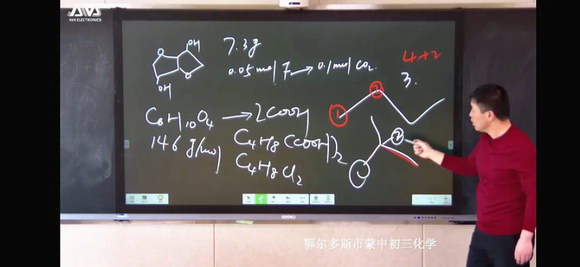 AVA
AVA ELECTRONICS
OH
OH
7.3g
0.05mol F → 0.1mol CO2
4+2
3.
C6H10O4 → 2COOH
146 g/mol
C4H8(COOH)2
C4H8Cl2
①
②
①
②
鄂尔多斯市蒙中初三化学